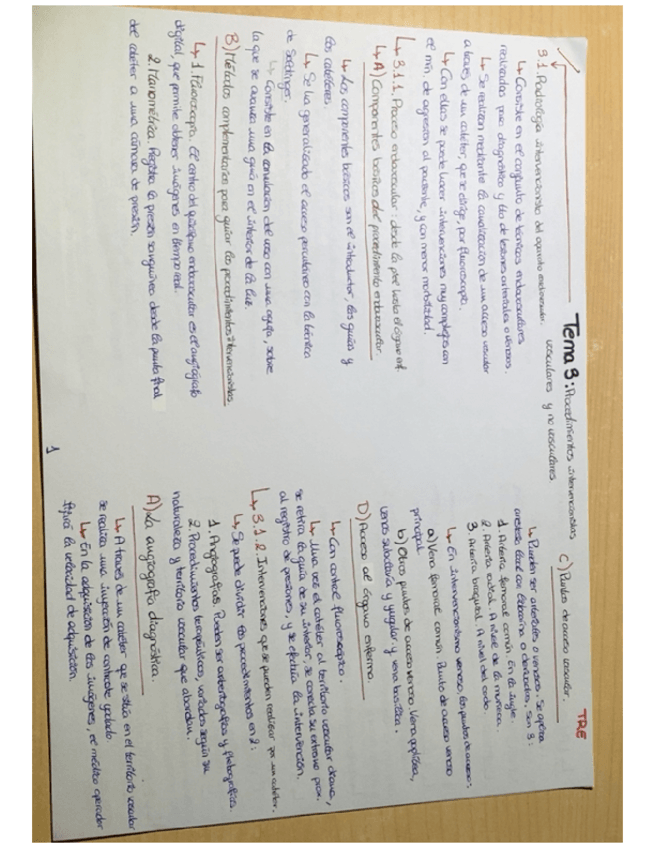 TRE
Tema 9: Procedimientos intervencionistas
vasculares y no vasculares.
9.1. Radiología intervencionista del aparato
↳ Consiste en el conjunto de técnicas endovasculares
realizadas para diagnóstico y tto de lesiones arteriales o venosas.
↳ Se realizan mediante la canalización de un acceso vascular
a través de un catéter, que se dirige, por fluoroscopio.
↳ Con ellas se puede hacer intervenciones muy complejas con
el mín. de agresión al paciente, y con menor morbilidad.
↳ 9.1.1. Proceso endovascular: desde la piel hasta el órgano enf.
↳ A) Componentes básicos del procedimiento endovascular
↳ Los componentes básicos son el introductor, las guías y
los catéteres.
↳ Se ha generalizado el acceso percutáneo con la técnica
de Seldinger.
↳ Consiste en la canulación del vaso con una aguja, sobre
la que se avanza una guía en el interior de la luz.
B) Métodos complementarios para guiar los procedimientos intervencionistas
↳ 1. Fluoroscopia. El centro del quirófano endovascular es el angiógrafo
digital, que permite obtener imágenes en tiempo real.
2. Manométrica. Registra la presión sanguínea desde la punta final
del catéter a una cámara de presión.
1
C) Puntos de acceso vascular.
↳ Pueden ser arteriales o venosos. Se aplica
anestesia local con lidocaína o derivados, son 3:
1. Arteria femoral común. En la ingle.
2. Arteria radial. A nivel de la muñeca.
3. Arteria braquial. A nivel del codo.
↳ En intervencionismo venoso, los puntos de acceso:
a) Vena femoral común. Punto de acceso venoso
principal.
b) Otros puntos de acceso venoso. Vena poplítea,
venas subclavia y yugular y vena basílica.
D) Acceso al órgano enfermo.
↳ Con control fluoroscópico.
↳ Una vez el catéter al territorio vascular diana,
se retira la guía de su interior, se conecta su extremo prox.
al registro de presiones, y se efectúa la intervención.
↳ 9.1.2. Intervenciones que se pueden realizar por un catéter.
↳ Se puede dividir los procedimientos en 2:
1. Angiografías. Pueden ser arteriografías y flebografías.
2. Procedimientos terapéuticos, variados según su
naturaleza y territorio vascular que abordan.
A) La angiografía diagnóstica.
↳ A través de un catéter que se sitúa en el territorio vascular
se realiza una inyección de contraste yodado.
↳ En la adquisición de las imágenes, el médico operador
fijará la velocidad de adquisición.